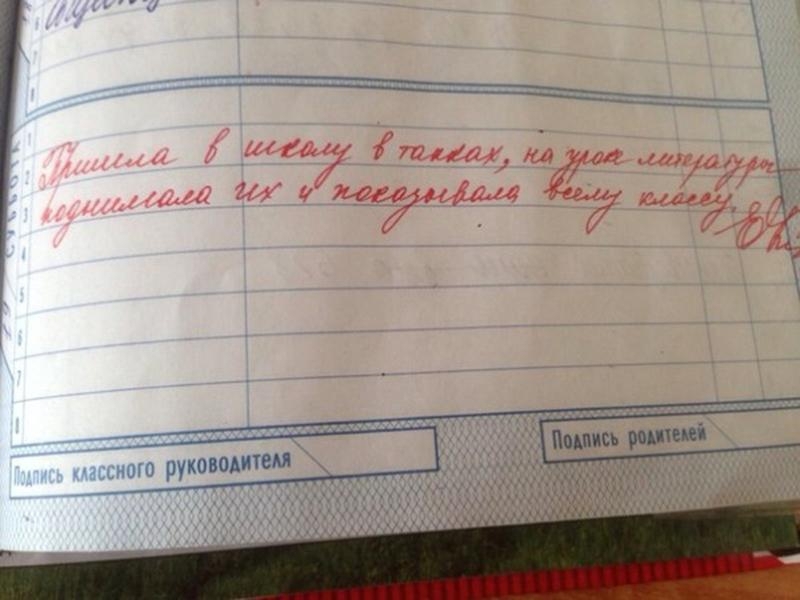 6
7
8
СУББОТА
1
Пришла в школу в тапках, на уроке литературы
2
поднимала их и показывала всему классу.
3
4
5
6
7
8
Подпись классного руководителя
Подпись родителей